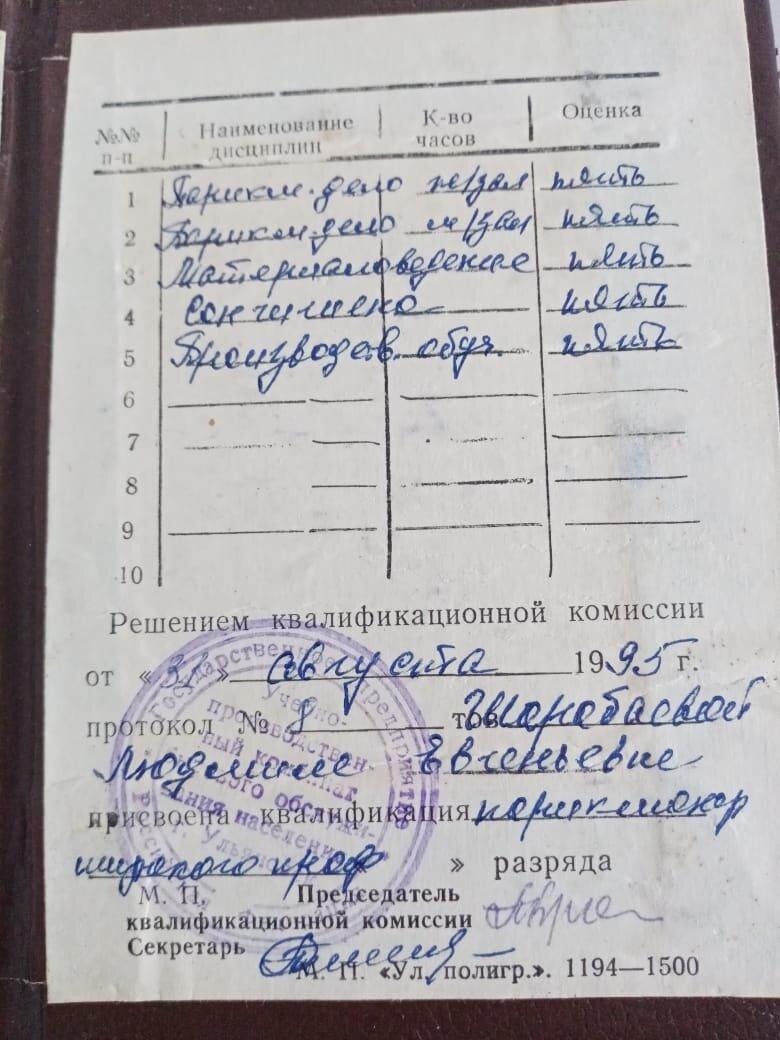 №№ п-п | Наименование дисциплин | К-во часов | Оценка
1 Парикм. дело ж/зал пять
2 Парикм. дело м/зал пять
3 Материаловедение пять
4 пять
5 Производств. обуч. пять
6
7
8
9
10
Решением квалификационной комиссии
от « 31 » августа 1995 г.
протокол № 8 тов.
Людмиле Евгеньевне
присвоена квалификация парикмахер
широкого проф » разряда
М. П. Председатель
квалификационной комиссии
Секретарь
М. П. «Ул. полигр.». 1194—1500
Государственное предприятие
Учебно-
производствен-
ный комбинат
обслужи-
вания населения
г. Ульяновск